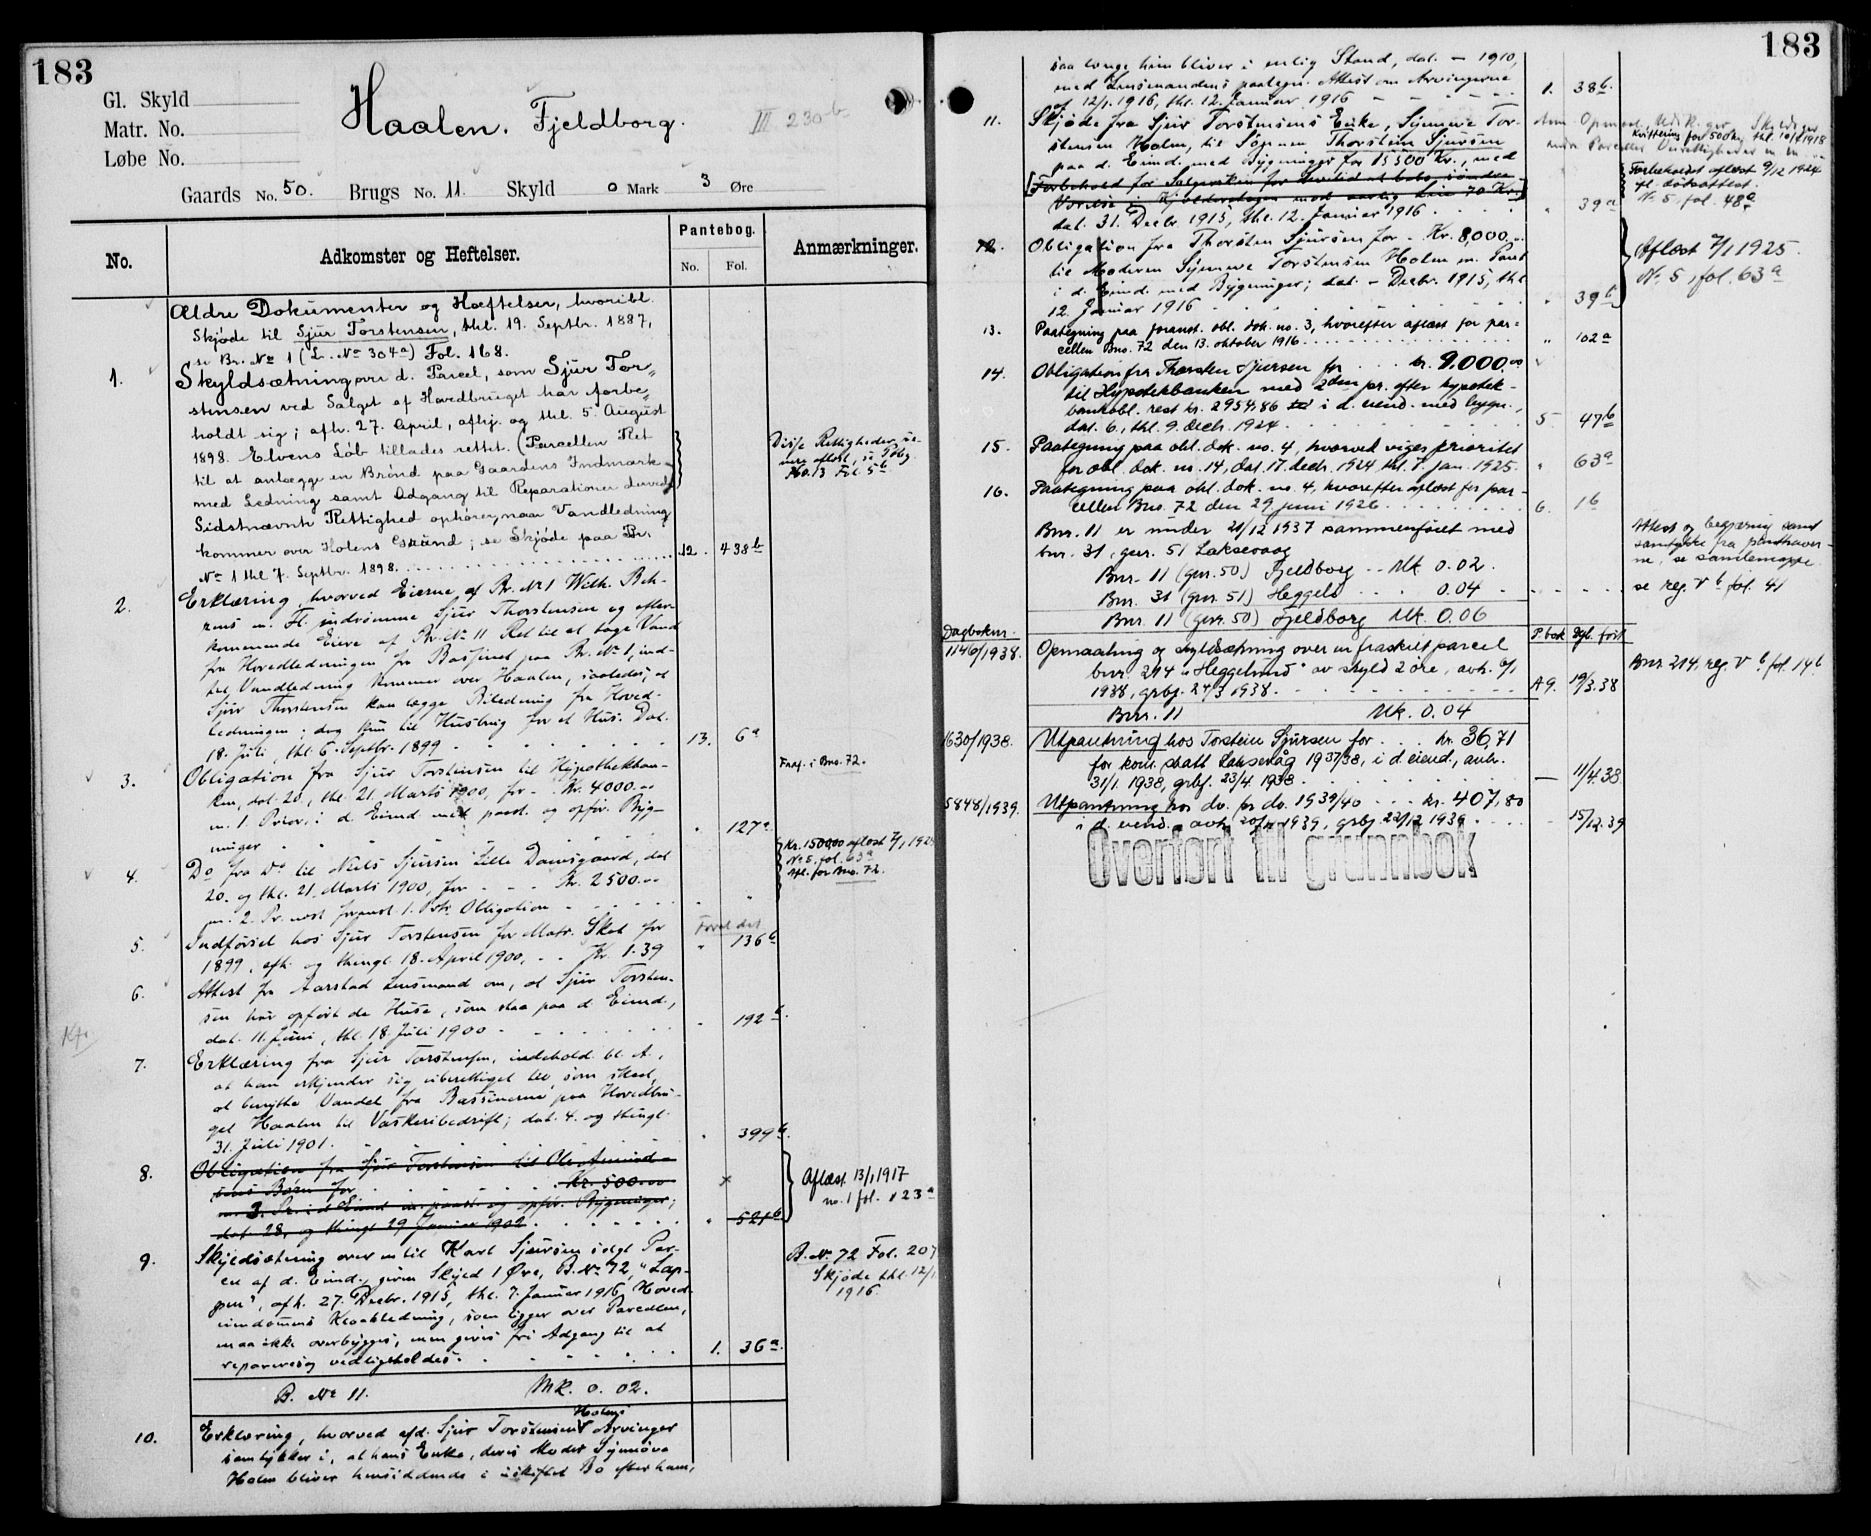 183
Gl. Skyld
Matr. No.
Løbe No.
Haalen. Fjeldborg.
III 230 b
Gaards No. 50. Brugs No. 11. Skyld 0 Mark 3 Øre
No.
Adkomster og Heftelser.
Pantebog.
No. Fol.
Anmærkninger.
Ældre Dokumenter og Hæftelser, hvoribl.
Skjøde til Sjur Torstensen, thl. 19. Septbr. 1887,
se Br. No 1 (L. No 304a) Fol. 168.
1. Skyldsætning over d. Parcel, som Sjur Tor-
stensen ved Salget af Hovedbruget har forbe-
holdt sig; afh. 27. April, afhj. og thl. 5. August
1898. Elvens Løb tillades rettet. (Parcellen Ret
til at anlægge en Brønd paa Gaardens Indmark
med Ledning samt Adgang til Reparationer derved
Sidstnævnte Rettighed ophører, naar Vandledning
kommer over Holens Grund; se Skjøde paa Br.
No 1 thl 7. Septbr. 1898. 12. 438b
Disse Rettigheder se-
nere aflöst, se Pbog
No. 13 Fol. 5b
2. Erklæring, hvorved Eierne af Br. No 1 Welh. Beh-
rens m. Fl. indrømme Sjur Thorstensen og efter-
kommende Eiere af Br. No 11 Ret til at tage Vand
fra Hovedledningen fra Bassinet paa Br. No 1, ind-
til Vandledning kommer over Haalen, saaledes, at
Sjur Thorstensen kan lægge Biledning fra Hoved-
ledningen; dog kun til Husbrug for et Hus. Dat.
18. Juli, thl. 6. Septbr. 1899 13. 6a
3. Obligation fra Sjur Torstensen til Hypothekban-
ken, dat. 20., thl. 21. Marts 1900, for Kr. 4000.00
m. 1. Prior. i d. Eiend med paast. og opför. Byg-
ninger 127a
Fraf. i Bno. 72.
4. Do fra Do til Niels Sjursen Lille Damsgaard, dat
20. og thl. 21. Marts 1900, for Kr. 2500.00
m. 2. Pr. næst foranst. 1. Pr. Obligation
Kr. 1500,00 aflöst 7/1 1925
No 5. fol. 63a
Afl. for Bno. 72.
5. Indförsel hos Sjur Torstensen for Matr. Skat for
1899, afh. og thingl. 18. April 1900, Kr. 1.39 " 136b
6. Attest fra Aarstad Lensmand om, at Sjur Torsten-
sen har opfört de Huse, som staa paa d. Eiend.,
dat. 11. Juni, thl. 18. Juli 1900 192b
7. Erklæring fra Sjur Torstensen, indehold. bl. A.,
at han erkjender sig uberettiget til, som skeed,
at benytte Vandet fra Bassinerne paa Hovedbru-
get Haalen til Vaskeribedrift; dat. 4. og thingl.
31. Juli 1901. 399b
8. Obligation fra Sjur Torstensen til Ole Amund-
sens Børn for Kr. 500.00
m. 3. Pr. i d. Eiend m. paast. og opför. Bygninger;
dat. 28. og thingl 29 Januar 1902 " 521b
Aflæst 13/1 1917
no. 1 fol. 123a
9. Skyldsætning over en til Karl Sjursen solgt Par-
cel af d. Eiend., given Skyld 1 Øre, B. No 72, "Lap-
pen", afh. 27. Decbr. 1915, thl. 7. Januar 1916. Hoved-
eiendommens Kloakledning, som ligger over Parcellen,
maa ikke overbygges, men gives fri Adgang til at
repareres og vedligeholdes. 1. 36a
B. No. 72 Fol. 207
Skjøde thl. 12/1
1916.
B. No 11. Mk. 0. 02.
10. Erklæring, hvorved afd. Sjur Torstensen Holms Arvinger
samtykker i, at hans Enke, deres Moder Synnöve
Holm bliver hensiddende i uskiftet Bo efter ham,
183
saa længe hun bliver i enlig Stand, dat. — 1910,
med Lensmandens paategn. Attest om Arvingerne
af 12/1. 1916, thl. 12. Januar 1916 1. 38b.
11. Skjøde fra Sjur Torstensens Enke, Synneve Tor-
stensen Holm, til Sønnen Thorstein Sjursen
paa d. Eiend. med Bygninger for 15500 Kr., med
Forbehold for Sælgersken for Levetid at bebo søndre
Værelse i Kjelderetagen mod aarlig Leie 70 Kr.
dat. 31. Decbr. 1915, thl. 12. Januar 1916 " 39a
Kvittering for 500 kr, thl. 10/1 1918
Forbeholdet aflæst 9/12 1924
fl. dödsattest.
No 5, fol. 48a
12. Obligation fra Thorsten Sjursen for Kr. 8,000.00
til Moderen Synneve Torstensen Holm m. Pant
i d. Eiend. med Bygninger; dat. — Decbr. 1915, thl
12. Januar 1916 " 39b
Aflæst 7/1 1925.
No. 5, fol. 63a
13. Paategning paa foranst. obl. dok. no. 3, hvorefter aflæst for par-
cellen Bno. 72 den 13. oktober 1916 " 102a
14. Obligation fra Thorsten Sjursen for kr. 9.000,00
til Hypotekbanken med 2den pr. efter hypotek-
bankobl. rest kr. 2954.86 i d. eiend. med bygn.,
dat. 6., thl. 9. decb. 1924 5 47b
15. Paategning paa obl. dok. no. 4, hvorved viges prioritet
for obl. dok. no. 14, dat. 17. decb. 1924, thl. 7. jan. 1925 " 63a
16. Paategning paa obl. dok. no. 4, hvorefter aflæst for par-
cellen Bno. 72 den 29. juni 1926 6. 1b
Bnr. 11 er under 21/12 1937 sammenføiet med
bnr. 31, gnr. 51 Laksevaag
Bnr. 11 (gnr. 50) Fjeldborg Mk 0.02.
Bnr. 31 (gnr. 51) Heggelo 0.04
Bnr. 11 (gnr. 50) Fjeldborg Mk. 0.06
Attest og begjæring samt
samtykke fra panthaver-
ne, se samlemappe.
se reg. V b fol. 41
Dagboknr. P.bok Dgl. ført
1146/1938. Opmaaling og skyldsætning over en fraskilt parcel
bnr. 214 "Heggelund" av skyld 2 øre, avh. 6/1
1938, grbg. 24/3 1938. A 9. 19/3.38
Bnr. 214, reg. V b. fol. 146
Bnr. 11 Mk. 0.04
1630/1938. Utpantning hos Torstein Sjursen for kr. 36,71
for kom. skatt Laksevåg 1937/38, i d. eiend., avh.
31/1. 1938, grbf. 23/4. 1938 — 11/4.38
5848/1939. Utpantning hos do. for do. 1939/40 kr. 407,80
i d. eiend., avh. 20/11 1939, grbg. 22/12 1939 15/12.39
Overført til grunnbok